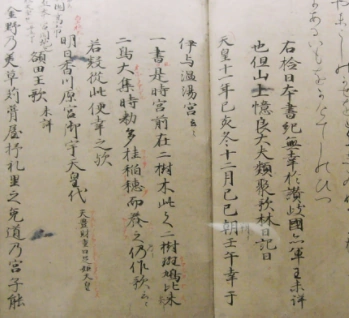 右検日本書紀無幸於讃岐國亦軍王未詳
也但山上憶良大夫類聚歌林曰記曰
天皇十一年己亥冬十二月己巳朔壬午幸于
伊与温湯宮云々
一書是時宮前在二樹木此之二樹斑鳩比米
二鳥大集時勅多挂稲穂而養之仍作歌云々
若疑従此便幸之歟
明日香川原宮御宇天皇代 天豊財重日足姫天皇
額田王歌 未詳
金野乃美草苅葺屋杼礼里之兎道乃宮子能